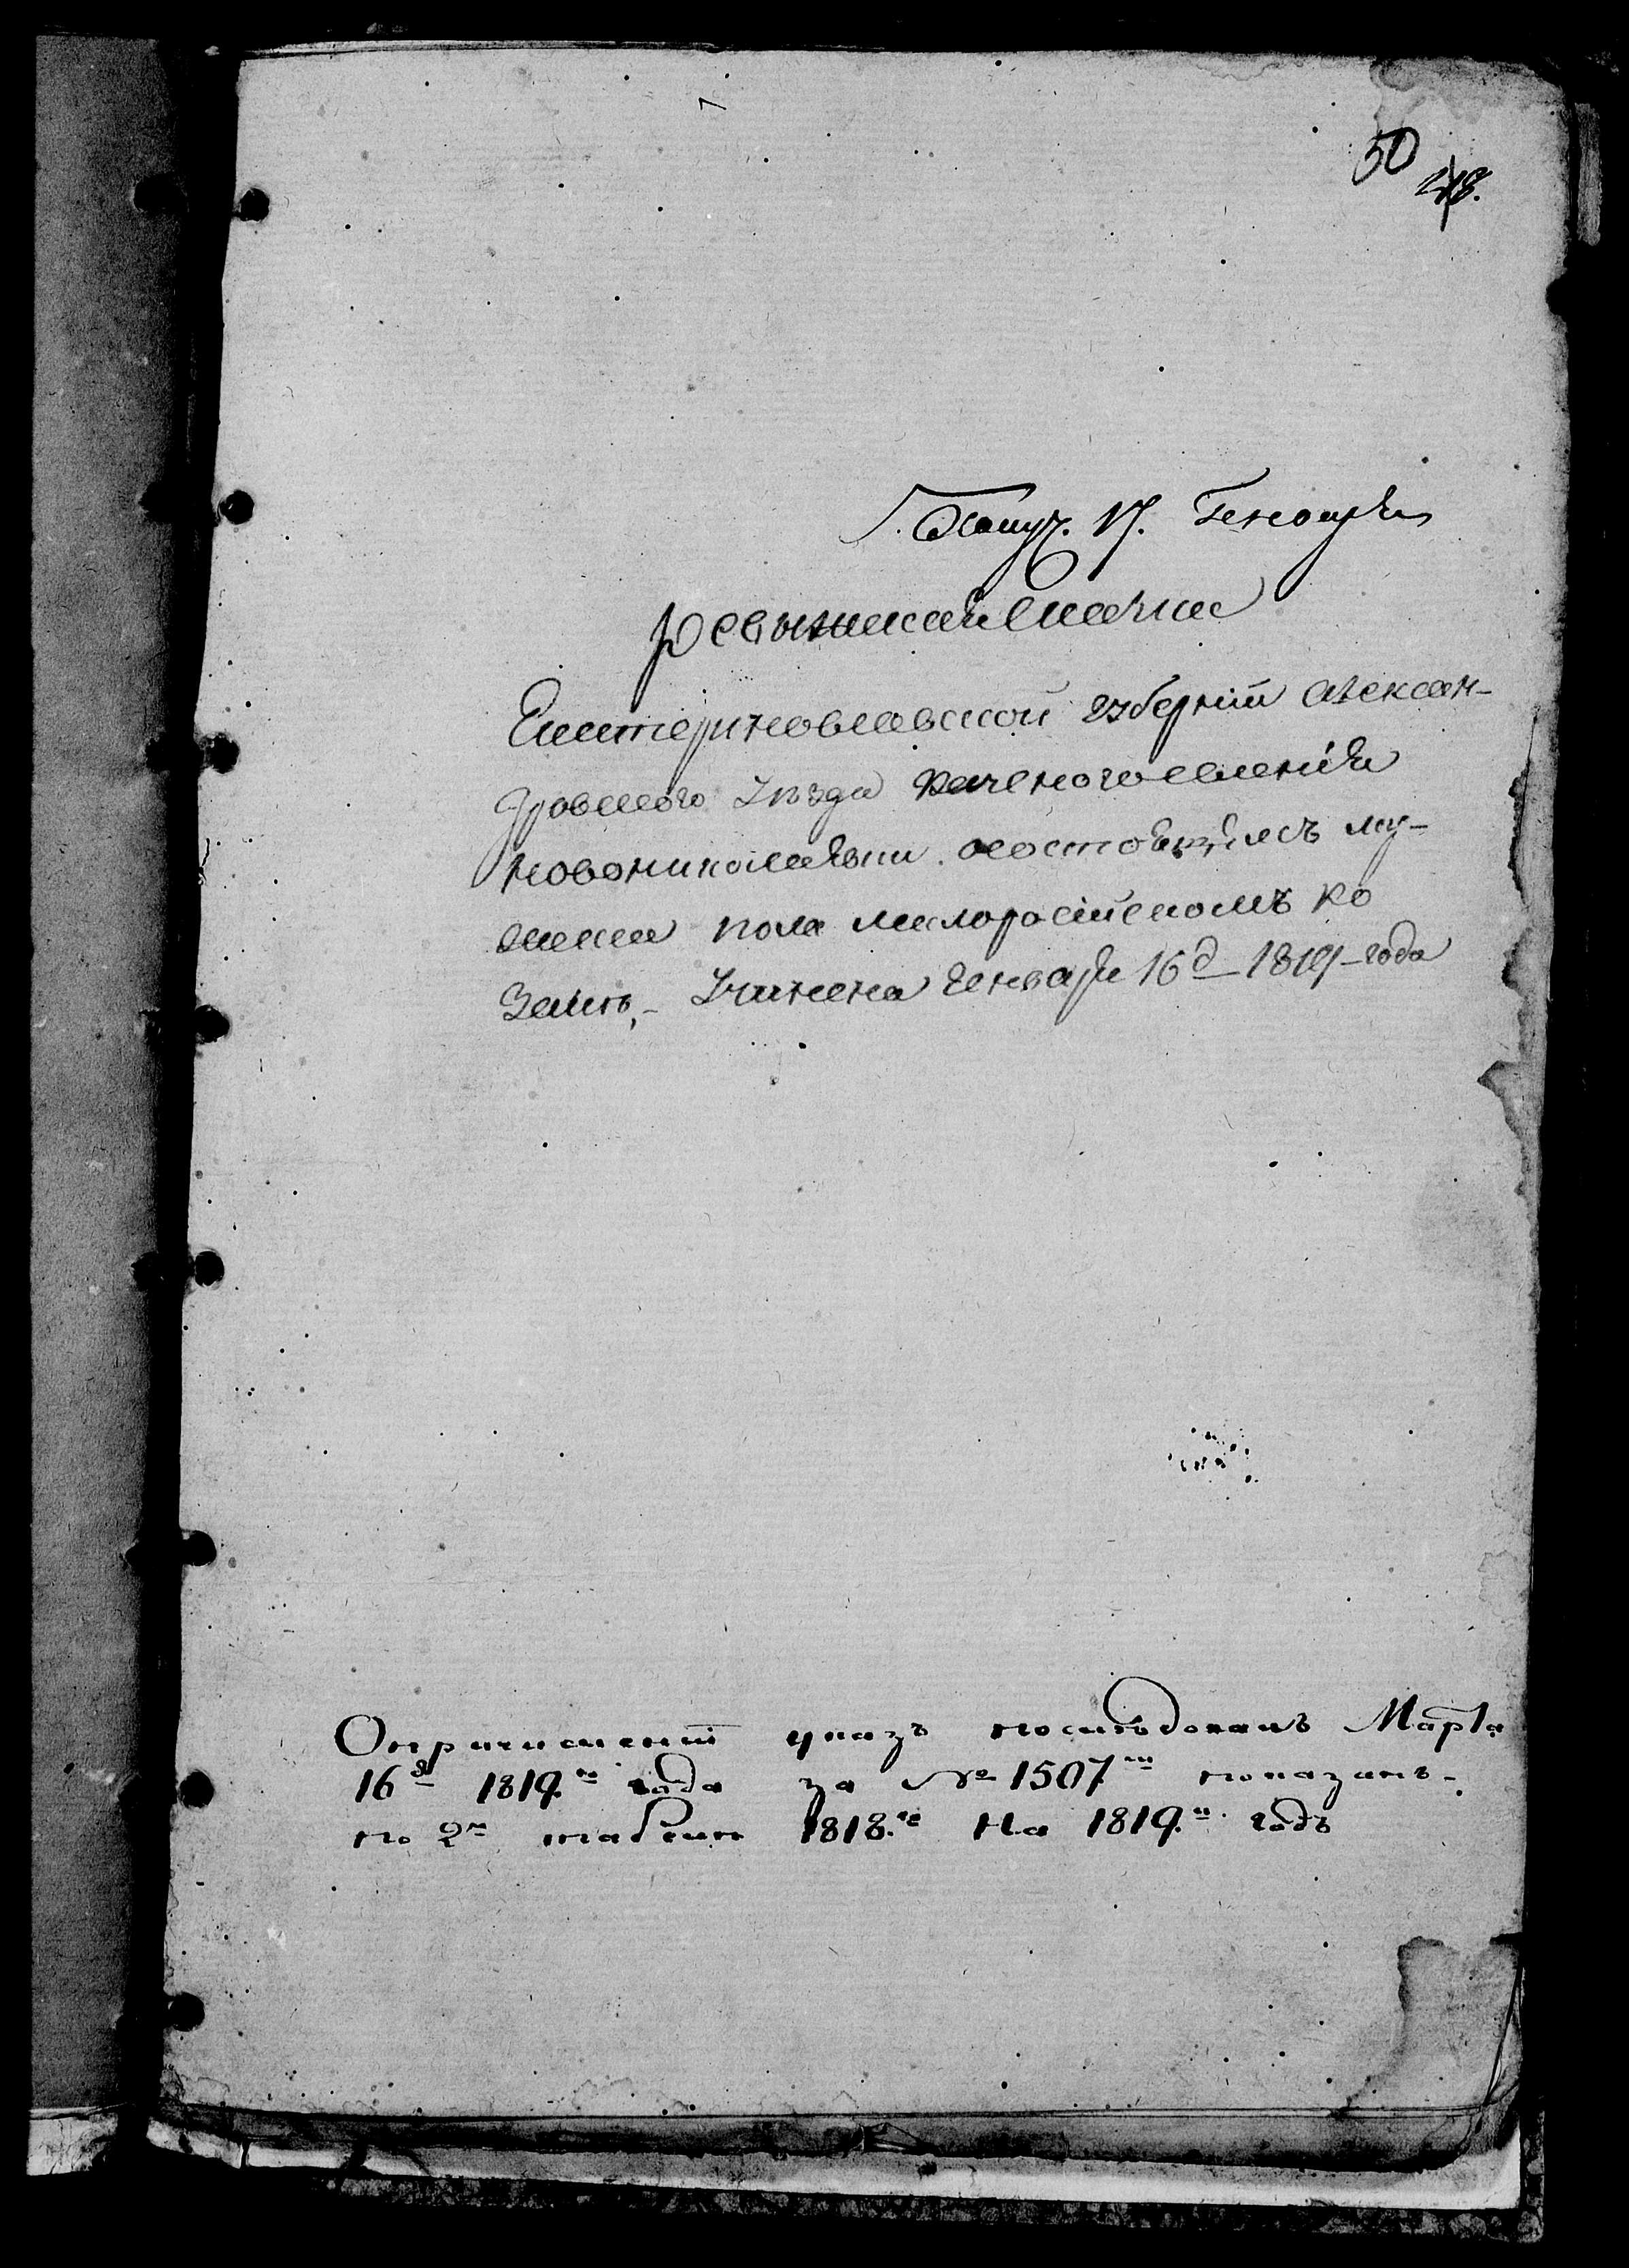 50
218.
Получ. 17. Генваря
ревижская Сказка
Екатериновлавской губерній Алексан-
дровского Уѣзда казеного селенія
новониколаевки. осостоящемъ му-
жеска пола малоросійскомъ ко
заке,- Учинена Генваря 16д 1819-года
О причисленіи указъ последовалъ Марта
16д 1819.го года за № 1507м показанъ-
по 2й табели 1818.го На 1819.й годъ